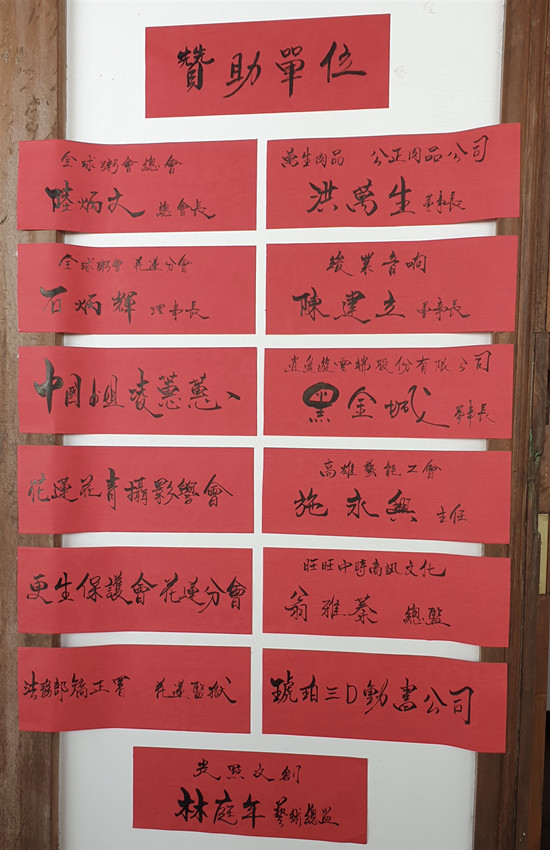 贊助單位
全球粥會總會
陸炳文 總會長
全球粥會 花蓮分會
石炳輝 理事長
中國小姐凌蕙蕙
花蓮花青攝影學會
更生保護會花蓮分會
法務部矯正署 花蓮監獄
萬生肉品 公正肉品公司
洪萬生 董事長
駿業音响
陳建立 董事長
逍遙遊雲端股份有限公司
黑金城 董事長
高雄藝能工會
施永興 主任
旺旺中時尚訊文化
翁雅蓁 總監
琥珀三D動畫公司
文創
林庭年 藝術總監